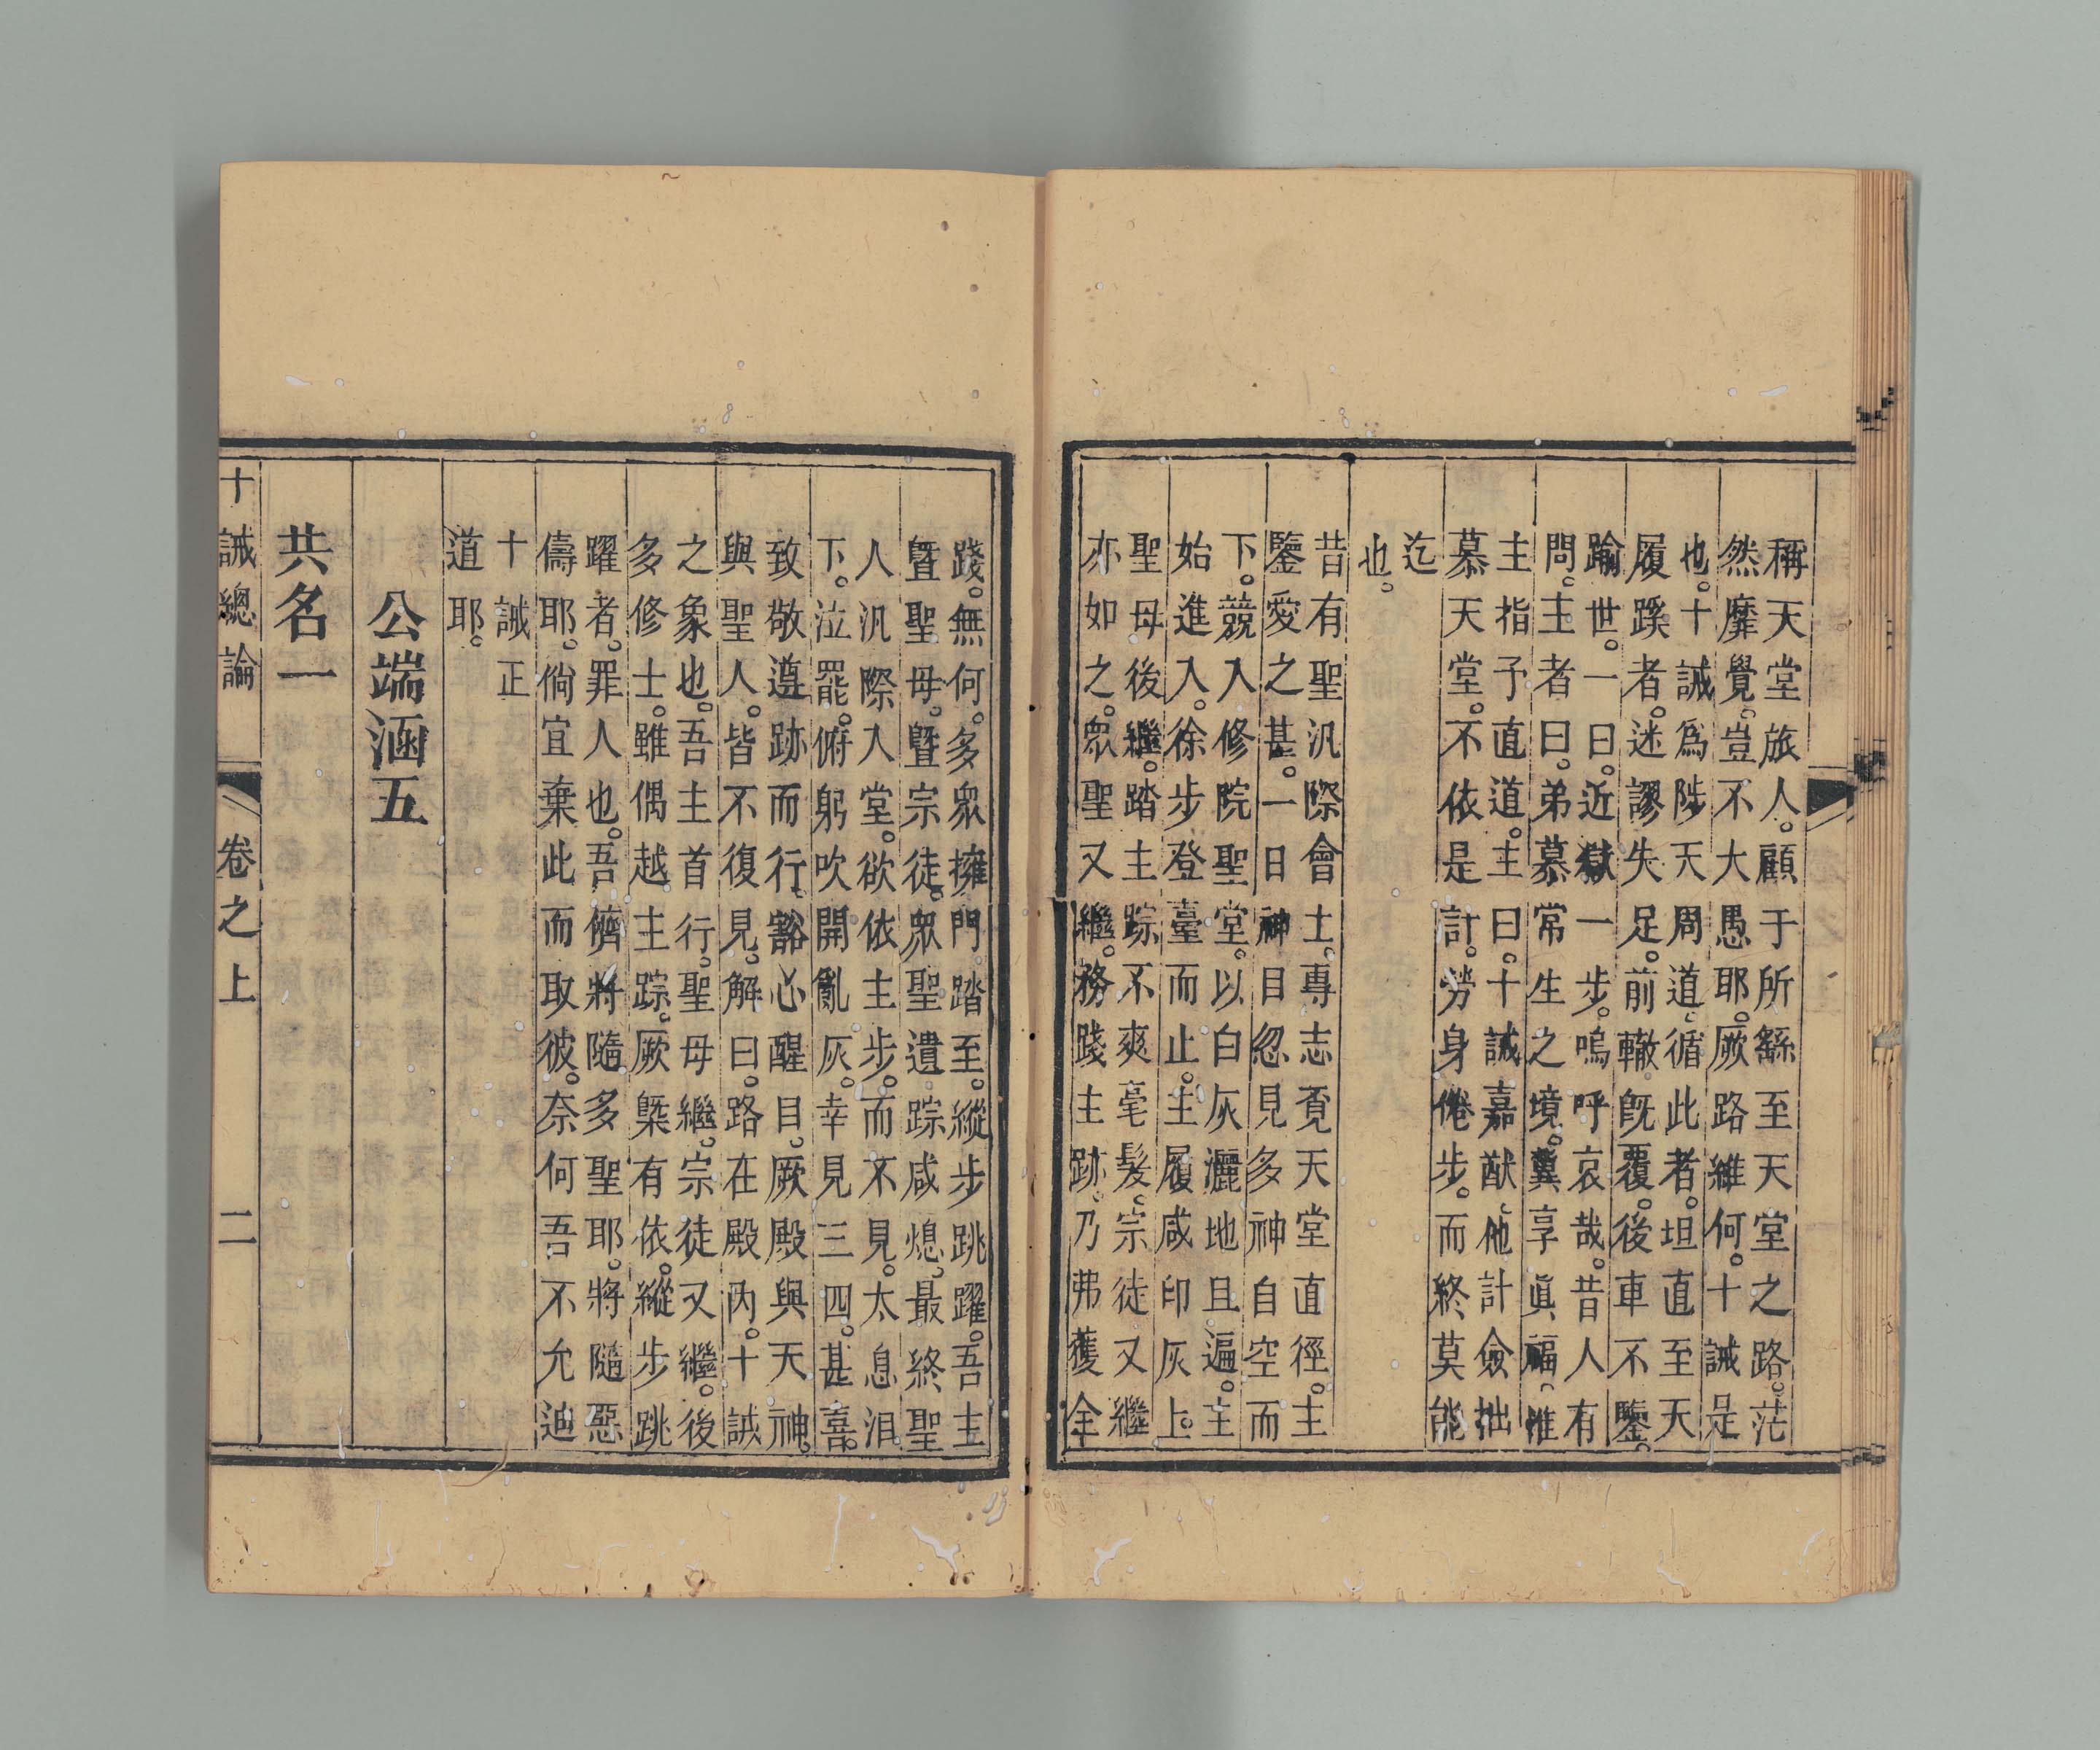 稱天堂旅人。顧于所繇至天堂之路。茫
然靡覺。豈不大愚耶。厥路維何。十誡是
也。十誡爲陟天周道。循此者。坦直至天
履蹊者。迷謬失足。前轍旣覆。後車不鑒。
踰世。一曰。近獄一步。嗚呼哀哉。昔人有
問。主者曰。弟慕常生之境。冀享眞福。惟
主指予直道。主曰。十誡嘉猷。他計儉拙
慕天堂。不依是計。勞身倦步。而終莫能
迄
也。
昔有聖汎際會士。專志覔天堂直徑。主
鑒愛之甚。一日神目忽見多神自空而
下。競入修院聖堂。以白灰灑地且遍。主
始進入。徐步登臺而止。主履咸印灰上。
聖母後繼。踏主踪不爽毫髮。宗徒又繼
亦如之。眾聖又繼。務踐主跡。乃弗獲全
踐。無何。多眾擁門。踏至。縱步跳躍。吾主
曁聖母。曁宗徒。眾聖遺踪咸熄。最終聖
人汎際入堂。欲依主步。而不見。太息泪
下。泣罷。俯躬吹開亂灰。幸見三四。甚喜。
致敬遵跡而行。豁心醒目。厥殿與天神。
與聖人。皆不復見。解曰。路在殿內。十誡
之象也。吾主首行。聖母繼。宗徒又繼。後
多修士。雖偶越主踪。厥槩有依。縱步跳
躍者。罪人也。吾儕將隨多聖耶。將隨惡
儔耶。倘宜棄此而取彼。奈何吾不允迪
十誡正
道耶。
公端涵五
共名一
十誡總論 卷之上 二